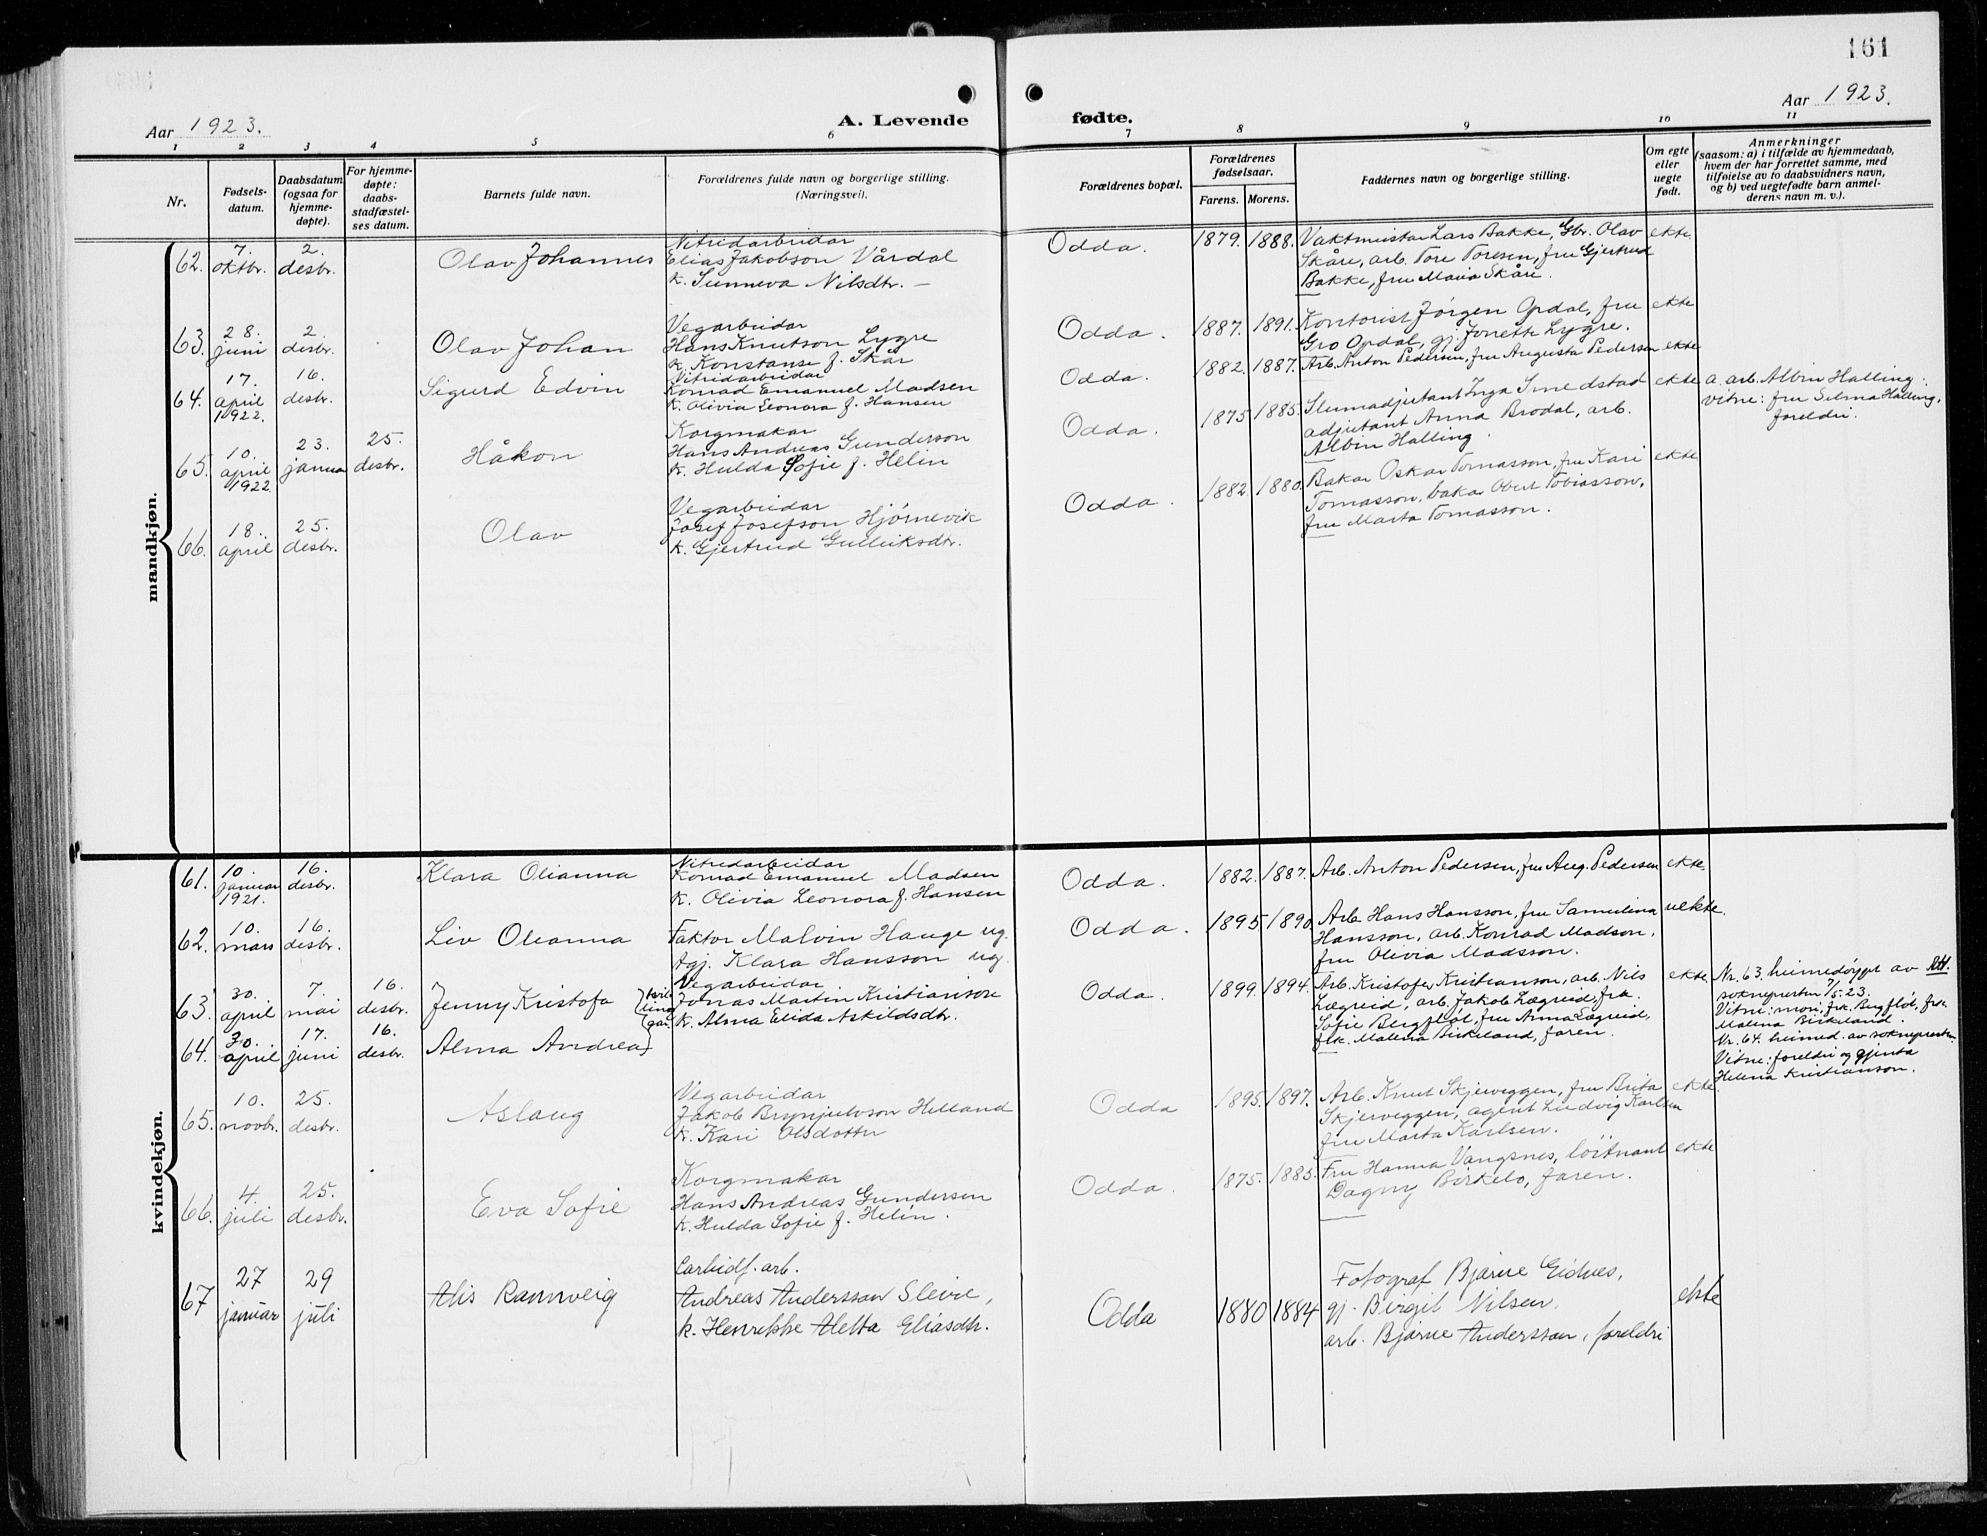 161
Aar 1923.
A. Levende
fødte.
Aar 1923.
1 2 3 4 5 6 7 8 9 10 11
Nr.
Fødsels-
datum.
Daabsdatum
(ogsaa for
hjemme-
døpte).
For hjemme-
døpte:
daabs-
stadfæstel-
ses datum.
Barnets fulde navn.
Forældrenes fulde navn og borgerlige stilling.
(Næringsvei).
Forældrenes bopæl.
Forældrenes
fødselsaar.
Farens. Morens.
Faddernes navn og borgerlige stilling.
Om egte
eller
uegte
født.
Anmerkninger
(saasom: a) i tilfælde av hjemmedaab,
hvem der har forrettet samme, med
tilføielse av to daabsvidners navn,
og b) ved uegtefødte barn anmel-
derens navn m. v.).
mandkjøn.
62. 7. oktbr. 2. desbr. Olav Johannes
Nitridarbeidar
Elias Jakobson Vårdal
k. Sunneva Nilsdtr. —
Odda. 1879. 1888.
Vaktmeistar Lars Bakke, Gbr. Olav
Skåre, arb. Tore Toresen, fru Gjertrud
Bakke, fru Maria Skåre.
ekte
63. 28. juni 2. desbr. Olav Johan
Vegarbeidar
Hans Knutson Lygre
k. Konstanse f. Skår
Odda. 1887. 1891.
Kontorist Jørgen Opdal, fru
Gro Opdal, gj. Jonette Lygre.
ekte
64. 17. april 1922. 16. desbr. Sigurd Edvin
Nitridarbeidar
Konrad Emanuel Madsen
k. Olivia Leonora f. Hansen
Odda. 1882. 1887.
Arb. Anton Pedersen, fru Augusta Pedersen
ekte
65. 10. april 1922. 23. januar 25. desbr. Håkon
Korgmakar
Hans Andreas Gunderson
k. Hulda Sofie f. Helin
Odda. 1875 1885.
Slumadjutant Inga Smedstad
adjutant Anna Brodal, arb.
Albin Halling.
ekte
a. arb. Albin Halling.
vitne: fru Selma Halling,
foreldri.
66. 18. april 25. desbr. Olav
Vegarbeidar
Josef Josefson Hjørnevik
k. Gjertrud Gulleiksdtr.
Odda. 1882. 1880.
Bakar Oskar Tomasson, fru Kari
Tomasson, bakar Obert Tobiasson,
fru Marta Tomasson.
ekte
kvindekjøn.
61. 10. januar 1921. 16. desbr. Klara Olianna
Nitridarbeidar
Konrad Emanuel Madsen
k. Olivia Leonora f. Hansen
Odda. 1882. 1887.
Arb. Anton Pedersen, fru Aug. Pedersen
ekte.
62. 10. mars 16. desbr. Liv Oleanna
Faktor Malvin Hauge ug.
Agj. Klara Hansson ug.
Odda. 1895 1890.
Arb. Hans Hansson, fru Samulina
Hansson, arb. Konrad Madson,
fru Olivia Madsson.
uekte.
63. 30. april 7. mai 16. desbr. Jenny Kristofa
Vegarbeidar
Jonas Martin Kristianson
k. Alma Elida Askildsdtr.
Odda. 1899. 1894.
Arb. Kristofer Kristianson, arb. Nils
Lægreid, arb. Jakob Lægreid, frk.
Sofie Bergfløt, fru Anna Lægreid,
frk. Malena Birkeland, faren.
ekte
Nr. 63. heimedøypt av
soknepresten 7/5.23.
Vitne: mori, frk. Bergfløt, frk.
Malena Birkeland.
Nr. 64. heimed. av soknepresten
Vitne: foreldri og gjenta
Helena Kristianson.
64. 30. april 17. juni 16. desbr. Alma Andrea
65. 10. novbr. 25. desbr. Aslaug
Vegarbeidar
Jakob Brynjulvson Helland
k. Kari Olsdotter
Odda 1895. 1897.
Arb. Knut Skjerveggen, fru Brita
Skjerveggen, agent Ludvig Karlsen
fru Marta Karlsen.
ekte
66. 4. juli 25. desbr. Eva Sofie
Korgmakar
Hans Andreas Gundersen
k. Hulda Sofie f. Helin.
Odda. 1875. 1885.
Fru Hanna Vangsnes, løitnant
Dagny Birkelo, faren.
ekte
67 27 januar 29 juli Alis Rannveig
Carbidf. arb.
Andreas Andersson Sleire,
k. Henrikke Aletta Eliasdtr.
Odda 1880 1884
Fotograf Bjarne Eidnes,
gj. Birgit Nilsen,
arb. Bjarne Andersson, foreldri
ekte